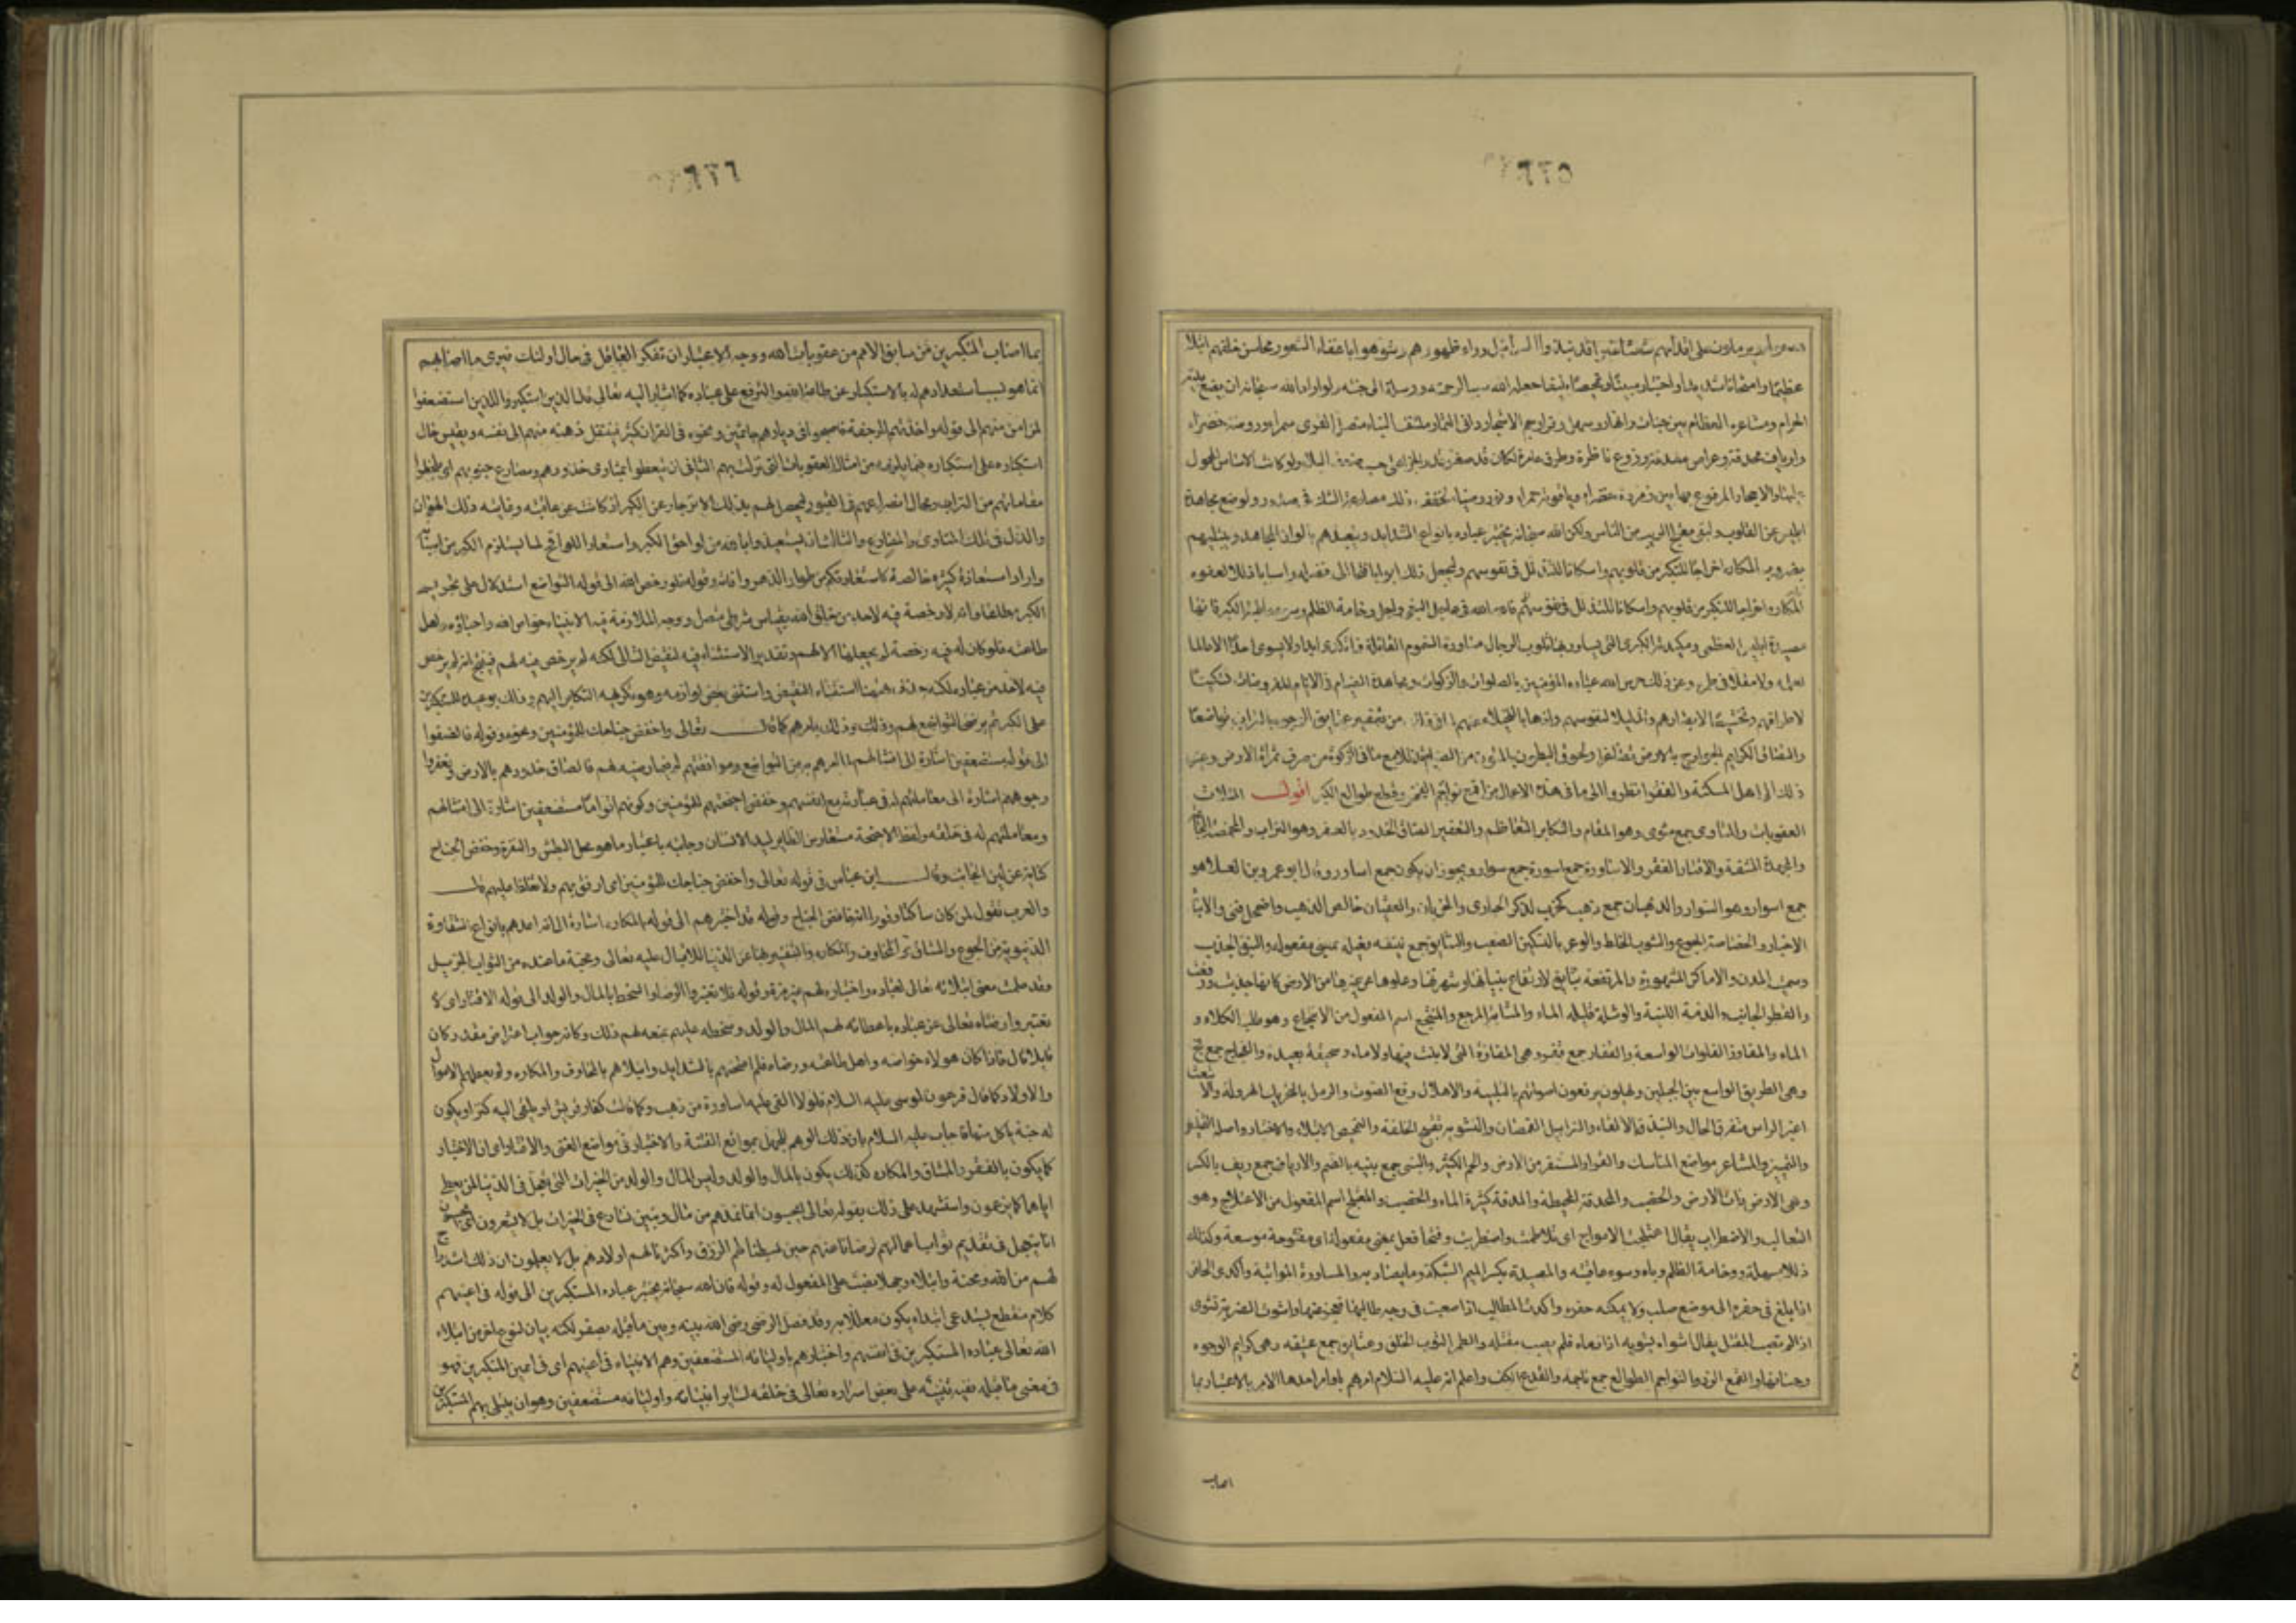 ٦٢٥
على اقدامهم شعثا غبرا قد نبذوا السرابيل وراء ظهورهم وشوهوا باعفاء الشعور محاسن خلقهم ابتلاء
عظيما وامتحانا شديدا واختبارا مبينا وتمحيصا بليغا جعله الله سببا لرحمته ووصلة الى جنته ولو اراد الله سبحانه ان يضع بيته
الحرام ومشاعره العظام بين جنات وانهار وسهل وقرار جم الاشجار دانى الثمار ملتف البناء متصل القوى بين برة سمراء وروضة خضراء
وارياف محدقة وعراص مغدقة وزروع ناظرة وطرق عامرة لكان قد صغر قدر الجزاء على حسب ضعف البلاء ولو كانت الاساس المحمول
عليها والاحجار المرفوع بها بين زمردة خضراء وياقوتة حمراء ونور وضياء لخفف ذلك مصارعة الشك فى الصدور ولوضع مجاهدة
ابليس عن القلوب ولنفى معتلج الريب من الناس ولكن الله سبحانه يختبر عباده بانواع الشدايد ويتعبدهم بالوان المجاهد ويبتليهم
بضروب المكاره اخراجا للتكبر من قلوبهم واسكانا للتذلل فى نفوسهم وليجعل ذلك ابوابا فتحا الى فضله واسبابا ذللا لعفوه
المكاره اخراجا للتكبر من قلوبهم واسكانا للتذلل فى نفوسهم فالله الله فى عاجل البغى واجل وخامة الظلم وسوء عاقبة الكبر فانها
مصيدة ابليس العظمى ومكيدته الكبرى التى تساور قلوب الرجال مساورة السموم القاتلة فما تكدى ابدا ولا تشوى احدا لا عالما
لعلمه ولا مقلا فى طمره وعن ذلك ما حرس الله عباده المؤمنين بالصلوات والزكوات ومجاهدة الصيام فى الايام المفروضات تسكينا
لاطرافهم وتخشيعا لابصارهم وتذليلا لنفوسهم واذهابا للخيلاء عنهم لما فى ذلك من تعفير عتايق الوجوه بالتراب تواضعا
والتصاق كرايم الجوارح بالارض تصاغرا ولحوق البطون بالمتون من الصيام تذللا مع ما فى الزكوة من صرف ثمرات الارض وغير
ذلك الى اهل المسكنة والفقر انظروا الى ما فى هذه الافعال من قمع نواجم الفخر وقطع طوالع الكبر اقول المثلات
العقوبات والمثاوى جمع مثوى وهو المقام والتكابر التعاظم والتعفير الصاق الخدود بالعفر وهو التراب والمخمصة الجوع
والمجهدة المشقة والاقتار الفقر والاساورة جمع اسورة جمع سوار ويجوز ان يكون جمع اساور وقال ابو عمرو بن العلا هو
جمع اسوار وهو السوار والذهبان جمع ذهب كخرب لذكر الحبارى والخربان والعقيان خالص الذهب واضمحل فنى والانباء
الاخبار والخصاصة الجوع والشوب الخلط والوعر بالتسكين الصعب والنتايق جمع نتيقة فعيلة بمعنى مفعولة والنتق الجذب
وسميت المدن والاماكن المشهورة والمرتفعة نتايق لارتفاع بنيانها وشهرتها وعلوها عن غيرها من الارض كانها جذبت ورفعت
والقطر الجانب والدمثة اللينة والوشلة قليلة الماء والمثابة المرجع والمنتجع اسم المفعول من الانتجاع وهو طلب الكلاء و
الماء والمفاوز الفلوات الواسعة والقفار جمع قفر وهى المفازة التى لا نبت فيها ولا ماء وسحيقة بعيدة والفجاج جمع فج
وهى الطريق الواسع بين الجبلين ويهلون يرفعون اصواتهم بالتلبية والاهلال رفع الصوت والرمل بالتحريك الهرولة والاشعث
اغبر الراس متفرق الحال والنبذ الالقاء والسرابيل القمصان والتشويه تقبيح الخلقة والتمحيص الابتلاء والاختبار واصله التخليص
والتمييز والمشاعر مواضع المناسك والقرار المستقر من الارض والجم الكثير والبنى جمع بنية بالضم والارياف جمع ريف بالكسر
وهى الارض ذات الزرع والخصب والمحدقة المحيطة والمغدقة كثيرة الماء والخصب والمعتلج اسم المفعول من الاعتلاج وهو
التغالب والاضطراب يقال اعتلجت الامواج اى تلاطمت واضطربت وفتحا فعل بمعنى مفعول اى مفتوحة موسعة وكذلك
ذللا سهلة ووخامة الظلم وباه وسوء عاقبته والمصيدة بكسر الميم الشبكة وما يصاد به والمساورة المواثبة واكدى الحافر
اذا بلغ فى حفره الى موضع صلب ولا يمكنه حفره واكدت المطالب اذا صعبت فى وجه طالبها واشوت الضربة تشوى
اذا لم تصب المقتل يقال اشواه يشويه اذا رماه فلم يصب مقتله والطمر الثوب الخلق وعتايق جمع عتيقة وهى كرايم الوجوه
وحسانها والقمع الرد والنواجم الطوالع جمع ناجمة والقدع الكف واعلم انه عليه السلام امرهم باوامر احدها الامر بالاعتبار بما
اصاب
٦٢٦
بما اصاب المتكبرين من سابق الامم من عقوبات الله ووجه الاعتبار ان تفكر العاقل فى حال اولئك فيرى ما اصابهم
انما هو بسبب استعدادهم له بالاستكبار عن طاعة الله والترفع على عباده كما اشار اليه تعالى قال الذين استكبروا للذين استضعفوا
لمن امن منهم الى قوله واخذتهم الرجفة فاصبحوا فى ديارهم جاثمين ونحوه فى القران كثير فينتقل ذهنه منهم الى نفسه ويقيس حال
استكباره على استكبارهم فيما يلزمه من امثال العقوبات التى نزلت بهم الثانى ان يتعظوا بمثاوى خدودهم ومصارع جنوبهم اى ينظروا
مقاماتهم من التراب ومحال انصراعهم فى القبور ليحصل لهم بذلك الانزجار عن الكبر اذ كانت عن عاقبته وغايته وذلك الهوان
والذل فى تلك المثاوى والمصارع والثالث ان يستعيذوا بالله من لواحق الكبر واستعار اللواقح لما يستلزم الكبر من اسبابه
واراد استعاذة كثيرة خالصة كاستعاذتكم من طوارق الدهر وافاته وقوله فلو رخص الله الى قوله التواضع استدلال على تحريم
الكبر مطلقا وانه لا رخصة فيه لاحد من خلق الله بقياس شرطى متصل ووجه الملازمة فيه الانبياء خواص الله واحباؤه واهل
طاعته فلو كان له فيه رخصة لم يجعلها الا لهم وتقدير الاستثناء فيه لنقيض التالى لكنه لم يرخص فيه لهم فينتج انه لم يرخص
فيه لاحد من عباده استثناء النقيض واستثنى بعض لوازمه وهو تكريهه التكابر اليهم وذلك بوعيده للمتكبرين
على الكبر ثم برضى التواضع لهم وذلك بامرهم كما قال تعالى واخفض جناحك للمؤمنين ونحوه وقوله فالصقوا
الى قوله مستضعفين اشارة الى امتثالهم لما امرهم به من التواضع وموافقتهم لرضاه منه لهم فالصاق خدودهم بالارض وتعفير
وجوههم اشارة الى معاملتهم له فى عبادته مع انفسهم وخفض اجنحتهم للمؤمنين وكونهم اقواما مستضعفين اشارة الى امتثالهم
ومعاملتهم له فى خلقه ولفظ الاجنحة مستعار من الطاير ليد الانسان وجانبه باعتبار ما هو محل البطش والنفرة وخفض الجناح
كناية عن لين الجانب وقال ابن عباس فى قوله تعالى واخفض جناحك للمؤمنين اى ارفق بهم ولا تغلظ عليهم قال
والعرب تقول لمن كان ساكنا وقورا انه خافض الجناح وقوله قد اختبرهم الى قوله بالمكاره اشارة الى انه اعدهم بانواع الشقاوة
الدنيوية من الجوع والمشاق ثم المخاوف والمكاره والتنفير بها عن الدنيا للاقبال عليه تعالى ومحبة ما عنده من الثواب الجزيل
وقد علمت معنى ابتلائه تعالى لعباده واختباره لهم غير مرة وقوله فلا تعتبروا الرضا والسخط بالمال والولد الى قوله الاقتار اى لا
تعتبروا رضاه تعالى عن عباده باعطائه لهم المال والولد وسخطه عليهم بمنعه لهم ذلك وكانه جواب اعتراض مقدر وكان
قايلا قال فاذا كان هولاء خواصه واهل طاعته ورضاه فلم امتحنهم بالشدايد وابتلاهم بالمخاوف والمكاره ولم يعطهم الاموال
والاولاد كما قال فرعون لموسى عليه السلام فلولا القى عليه اساورة من ذهب وكما قالت كفار قريش او يلقى اليه كنز او يكون
له جنة ياكل منها فاجاب عليه السلام بان ذلك الوهم للجهل بمواقع الفتنة والاختبار فى مواضع الغنى والاقتار اى ان الاختبار
كما يكون بالفقر والمشاق والمكاره كذلك يكون بالمال والولد وليس المال والولد من الخيرات التى تعجل فى الدنيا لمن يعطى
اياها كما يزعمون واستشهد على ذلك بقوله تعالى ايحسبون انما نمدهم به من مال وبنين نسارع لهم فى الخيرات بل لا يشعرون اى يحسبون
انا نعجل فى تقديم ثواب اعمالهم لرضانا عنهم حين بسطنا لهم الرزق واكثرنا لهم اولادهم بل لا يعلمون ان ذلك استدراج
لهم من الله ومحنة وابتلاء نصب على المفعول له وقوله فان الله سبحانه يختبر عباده المستكبرين الى قوله فى اعينهم
كلام منقطع يستدعى ابتداء يكون معللا به وقد فصل الرضى رضى الله بينه وبين ما قبله بيان لنوع اخر من ابتلاء
الله تعالى عباده المستكبرين فى انفسهم واختبارهم باوليائه المستضعفين وهم الانبياء فى اعينهم اى فى اعين المتكبرين فهو
فى معنى ما قبله وفيه تنبيه على بعض اسراره تعالى فى خلقه لساير انبيائه واوليائه مستضعفين وهو ان يبتلى بهم المتكبرين